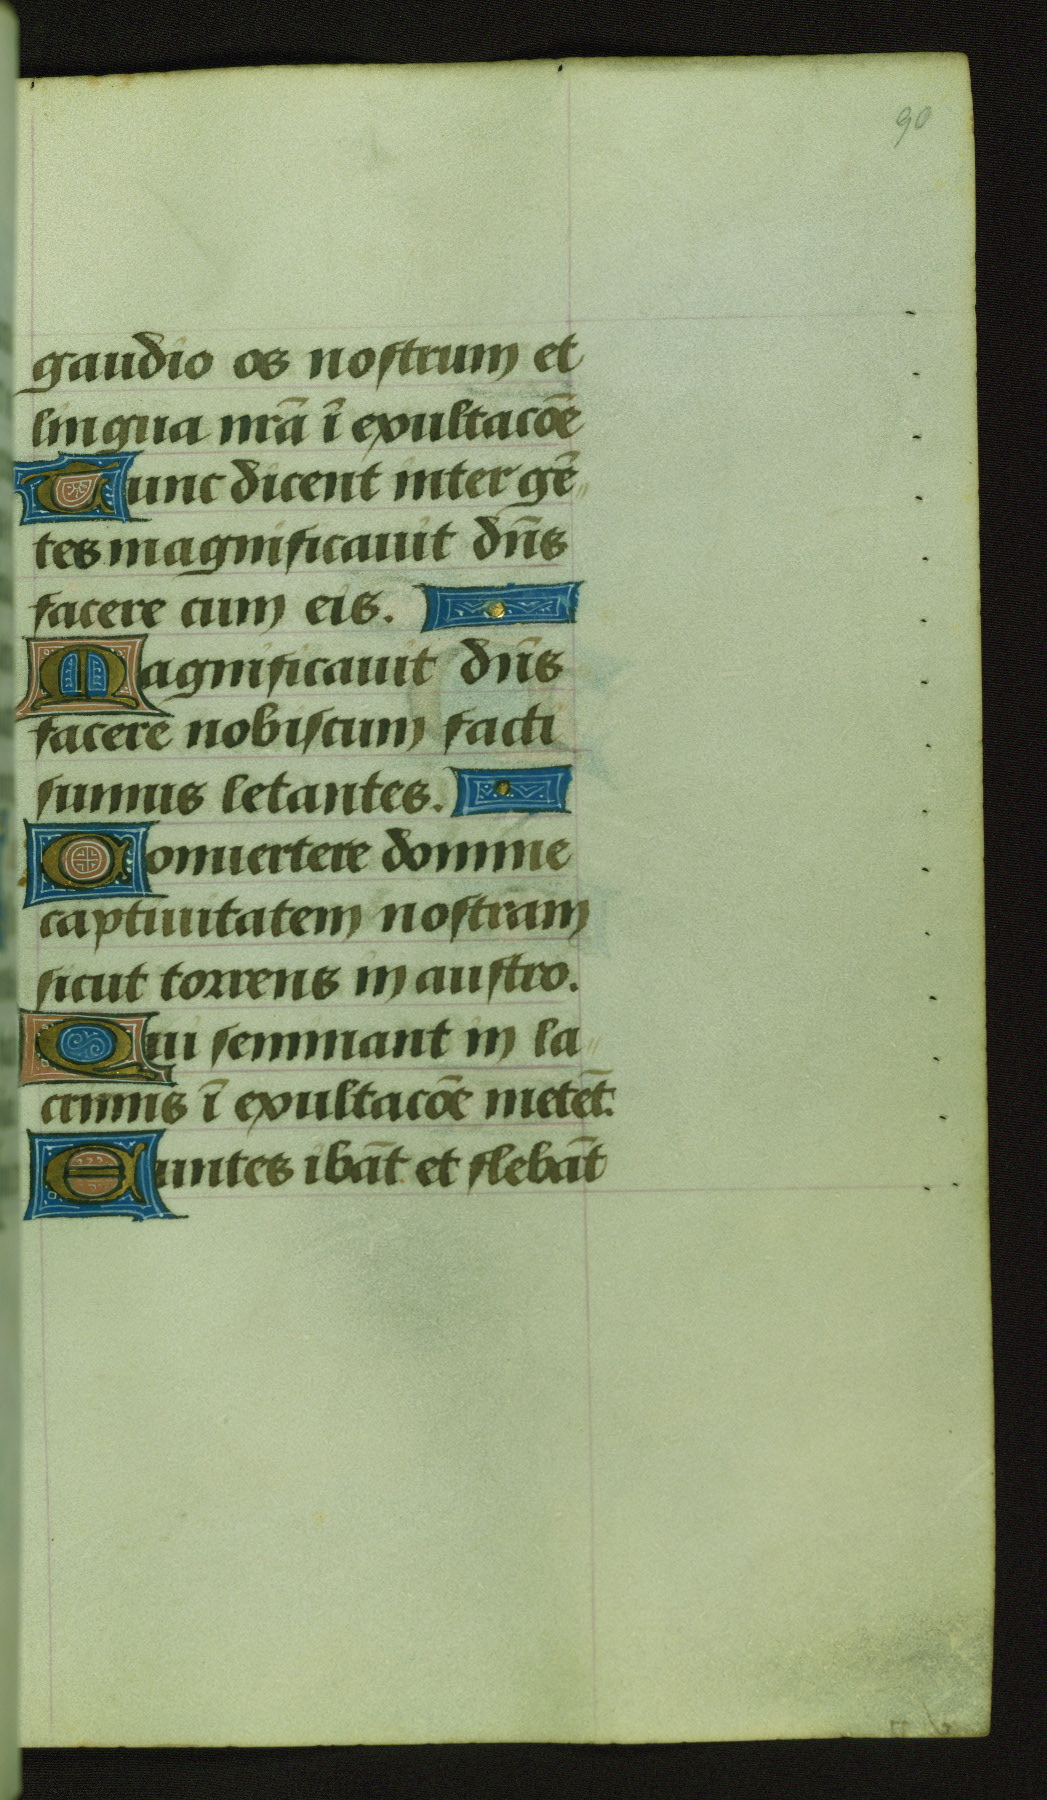 90
gaudio os nostrum et
lingua nrā ī exultacōe
Tunc dicent inter gē„
tes magnificauit dn̄s
facere cum eis.
Magnificauit dn̄s
facere nobiscum facti
sumus letantes.
Conuertere domine
captiuitatem nostram
sicut torrens in austro.
Qui seminant in la„
crimis ī exultacōe metēt.
Euntes ibāt et flebāt